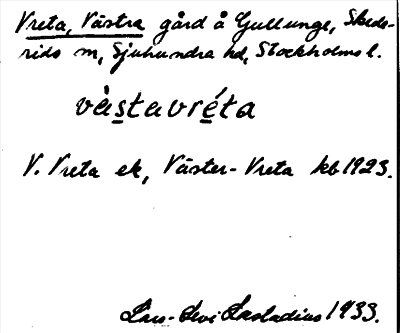 Vreta, Västra gård å Gullunge, Skeds-
rids sn, Sjuhundra hd, Stockholms l.
vàstavréta
V. Vreta ek, Väster-Vreta kb 1923.
Lars-Levi Læstadius 1933.